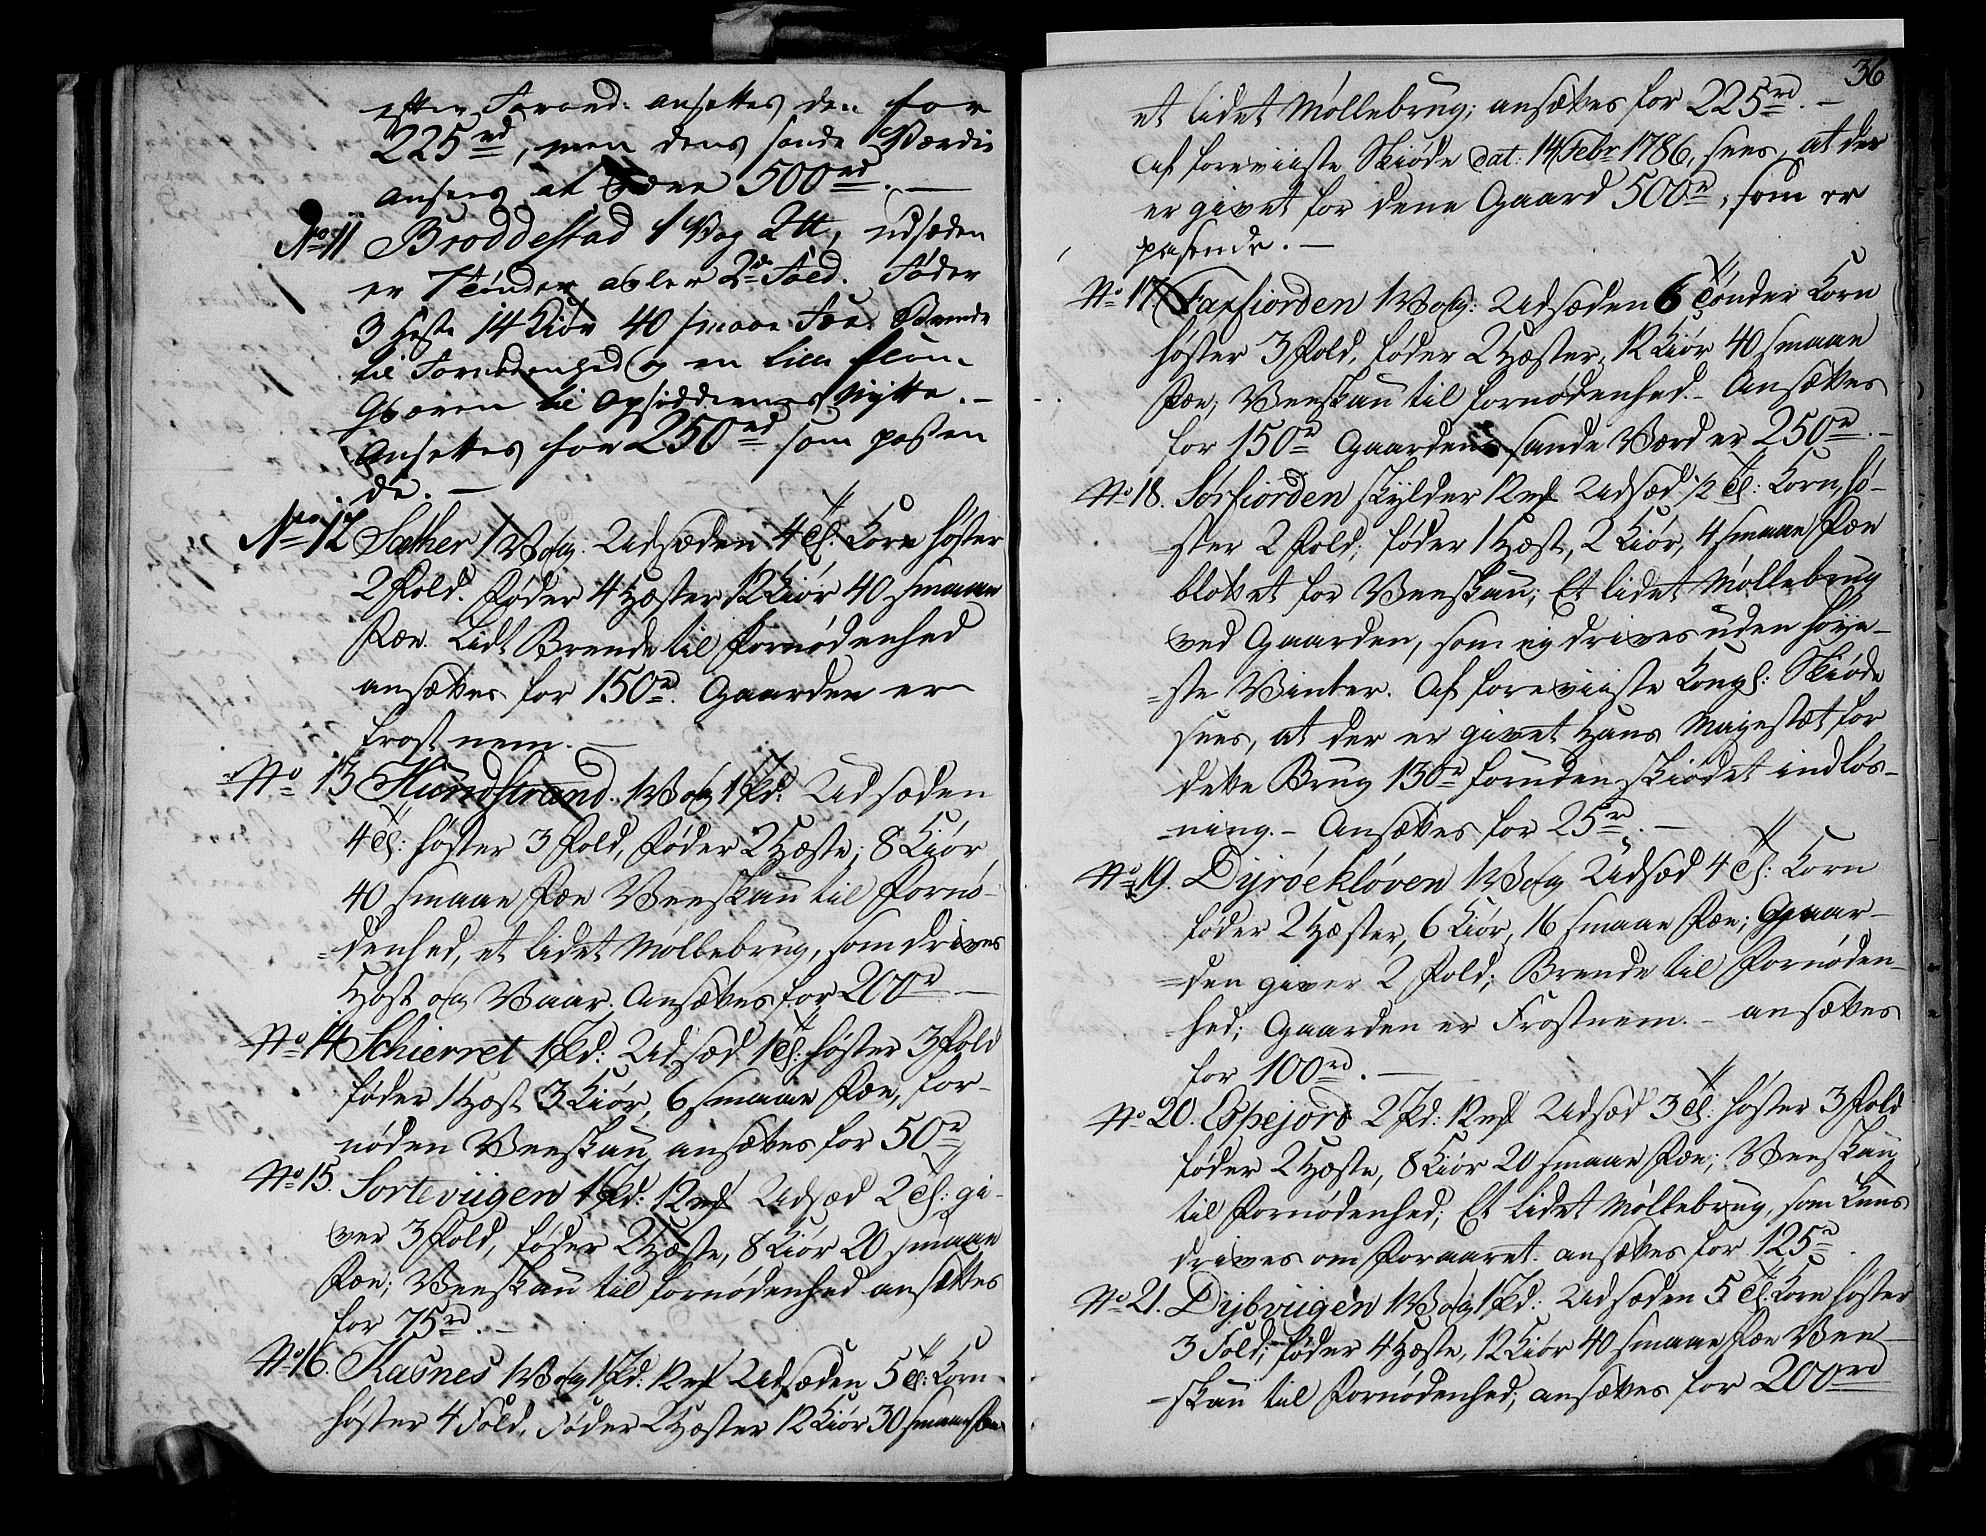 efter Forord: ansettes den for
225 rd, men dens sande Værdie
ansees at være 500 rd. —
No 11 Broddestad 1 Vog 2 ℔, udsæden
er 7 tönder avler 2de Fold. Föder
3 Heste 14 Kiör 40 smaae Fæe. Brende
til Fornödenhed og en liden
Qværn til Opsiddernes Nytte. —
Ansettes for 250 rd som passen
de. —
No 12 Sæther 1 Vog. Udsæden 4 Tr: Korn høster
2 Fold. føder 4 Hæster, 12 Kiör 40 smaae
Fæe. Lidt Brende til fornødenhed
ansættes for 150 r. Gaarden er
frost nem. —
No 13 Hundstrand. 1 Vog 1 Pd: Udsæden
4 Tr: høster 3 Fold, føder 2 Hæste, 8 Kiör,
40 smaae Fæe Veeskau til fornø-
=denhed, et lidet Møllebrug, som drives
Høst og Vaar. Ansættes for 200 r —
No 14 Schierret 1 Pd: Udsæd 1 Tr: høster 3 Fold
føder 1 Hæst 3 Kiör, 6 smaae Fæe, for-
nøden Veeskau, ansættes for 50 r
No 15. Sorteviigen 1 Pd: 12 mk Udsæd 2 Tr: gi-
ver 3 Fold, føder 2 Hæste, 8 Kiör 20 smaae
Fæe; Veeskau til fornødenhed ansættes
for 75 rd. —
No 16. Kasnes 1 Vog 1 Pd: 12 mk Udsæden 5 Tr: Korn
høster 4 Fold, føder 2 Hæster 12 Kiör 30 smaae Fæe
36
et lidet Møllebrug; ansættes for 225 rd. —
Af foreviiste Skiøde dat: 14 Febr 1786, sees, at der
er givet for dene Gaard 500 r, som er
passende. —
No 17 Faxfiorden 1 Vog: Udsæden 6 Tønder Korn
høster 3 Fold, føder 2 Hæster, 12 Kiör 40 smaae
Fæe, Veeskau til fornødenhed. — Ansættes
for 150 r Gaardens sande Værd er 250 r. —
No 18. Sørfiorden skylder 12 mk Udsæd ½ Tr: Korn, hø-
=ster 2 Fold, føder 1 Hæst, 2 Kiör, 4 smaae Fæe
blottet for Veeskau; Et lidet Møllebrug
ved Gaarden, som ey drives uden høye-
=ste Vinter. Af foreviiste Kongl: Skiøde
sees, at der er givet Hans Mayestæt for
dette Brug 130 r foruden skiødet indløs-
=ning. — Ansættes for 25 r. —
No 19. Dyrøekløven 1 Vog Udsæd 4 Tr: Korn
føder 2 Hæster, 6 Kiör, 16 smaae Fæe; Gaar-
=den giver 2 Fold; Brende til Fornøden-
hed; Gaarden er Frostnem. — ansættes
for 100 rd. —
No 20. Espejord 2 Pd: 12 mk Udsæd 3 Tr: høster 3 Fold
føder 2 Hæste, 8 Kiör 20 smaae Fæe; Veeskau
til Fornødenhed; Et lidet Møllebrug, som kuns
drives om Foraaret. ansættes for 125 r.
No 21. Dybviigen 1 Vog 1 Pd: Udsæden 5 Tr: Korn høster
3 Fold; føder 4 Hæste, 12 Kiör 40 smaae Fæe Vee-
=skau til Fornødenhed; ansættes for 200 rd